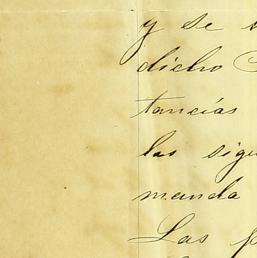 y se
dicho
tancías
las sigu
manda
Las